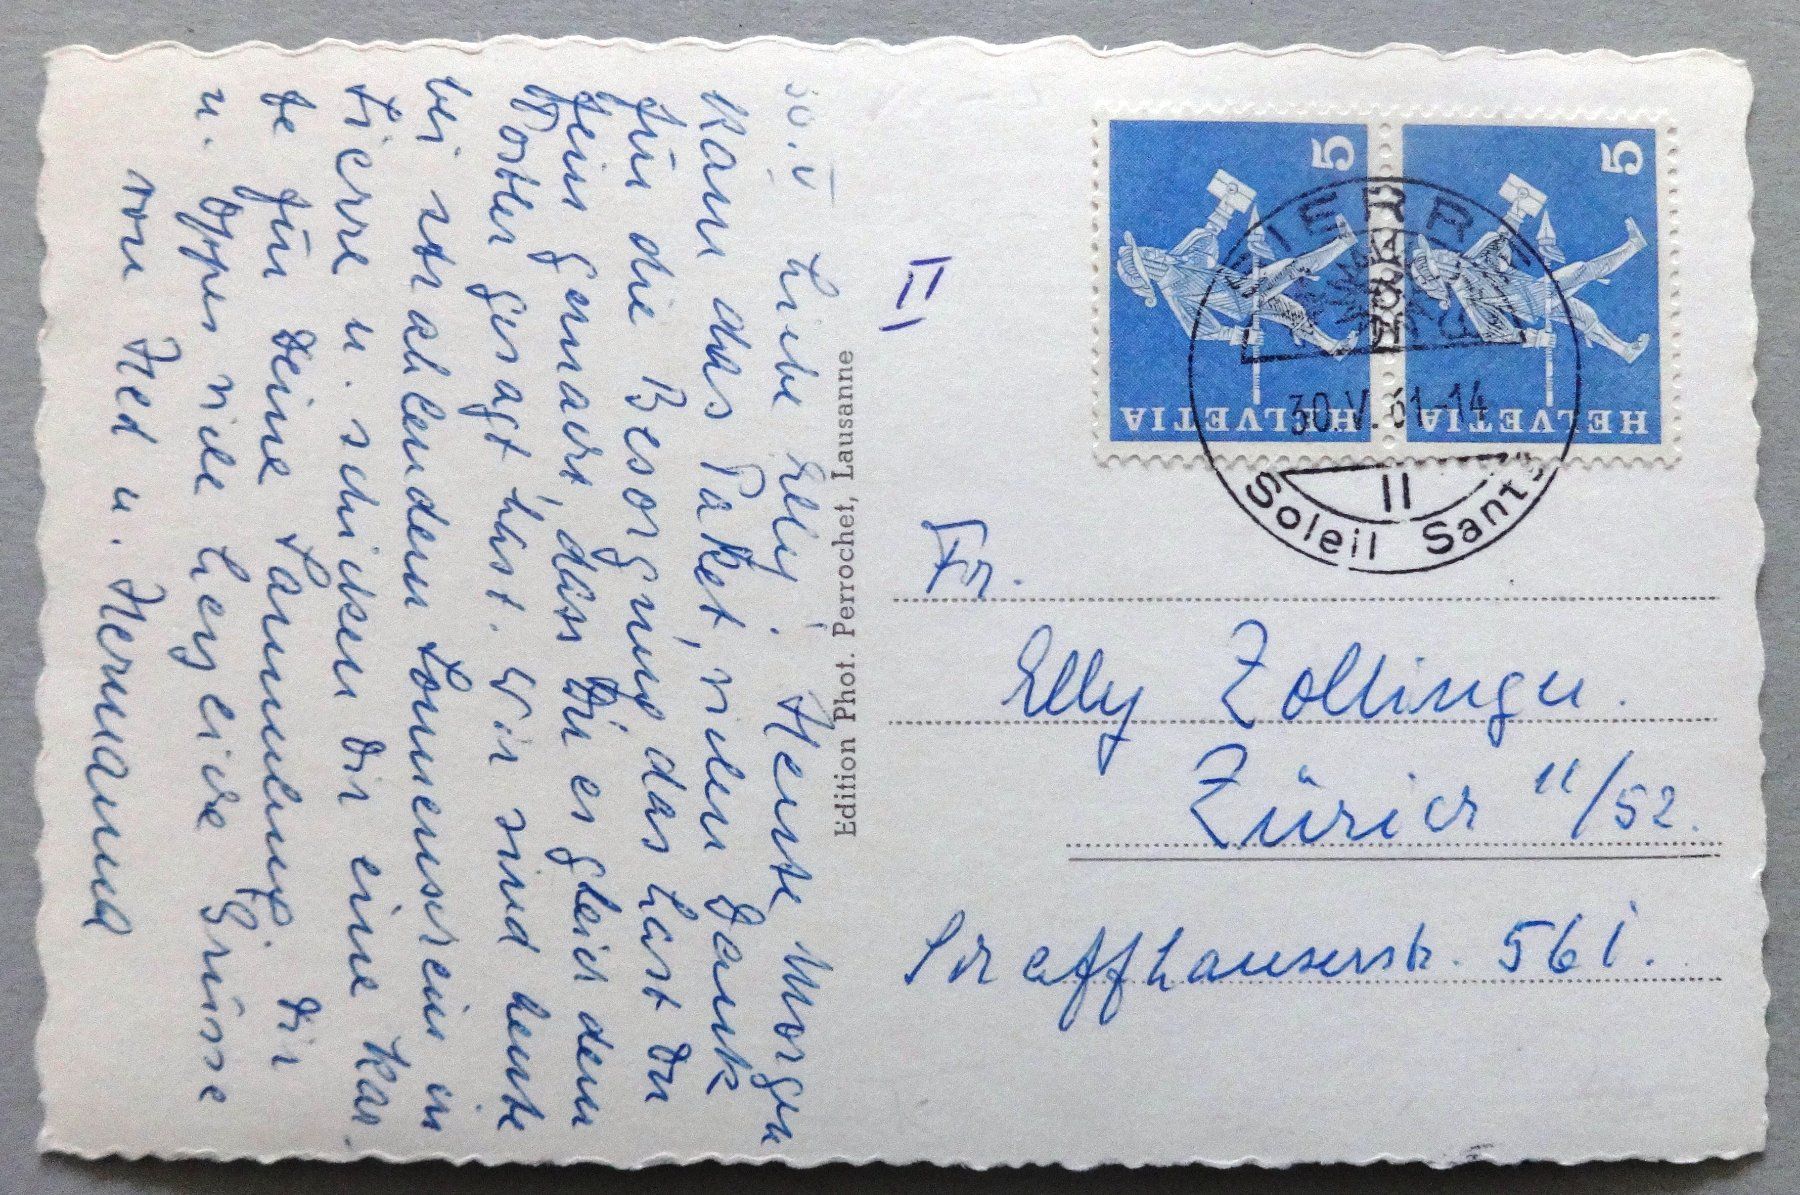 30.V Liebe Elly! Heute Morgen
kam das Paket, vielen Dank
für die Besorgung, das hast Du
fein gemacht, dass Du es gleich dem
Pöstler gesagt hast. Wir sind heute
bei strahlendem Sonnenschein in
Sierre u. schicken Dir eine Kar-
te für Deine Sammlung. Dir
u. viele herzliche Grüsse
von Hed u. Hermann
Edition Phot. Perrochet, Lausanne
II
5
HELVETIA
5
HELVETIA
SIERRE
30.V.61-14
II
Soleil Santé
Fr.
Elly Zollinger.
Zürich 11/52.
Schaffhauserstr. 561.